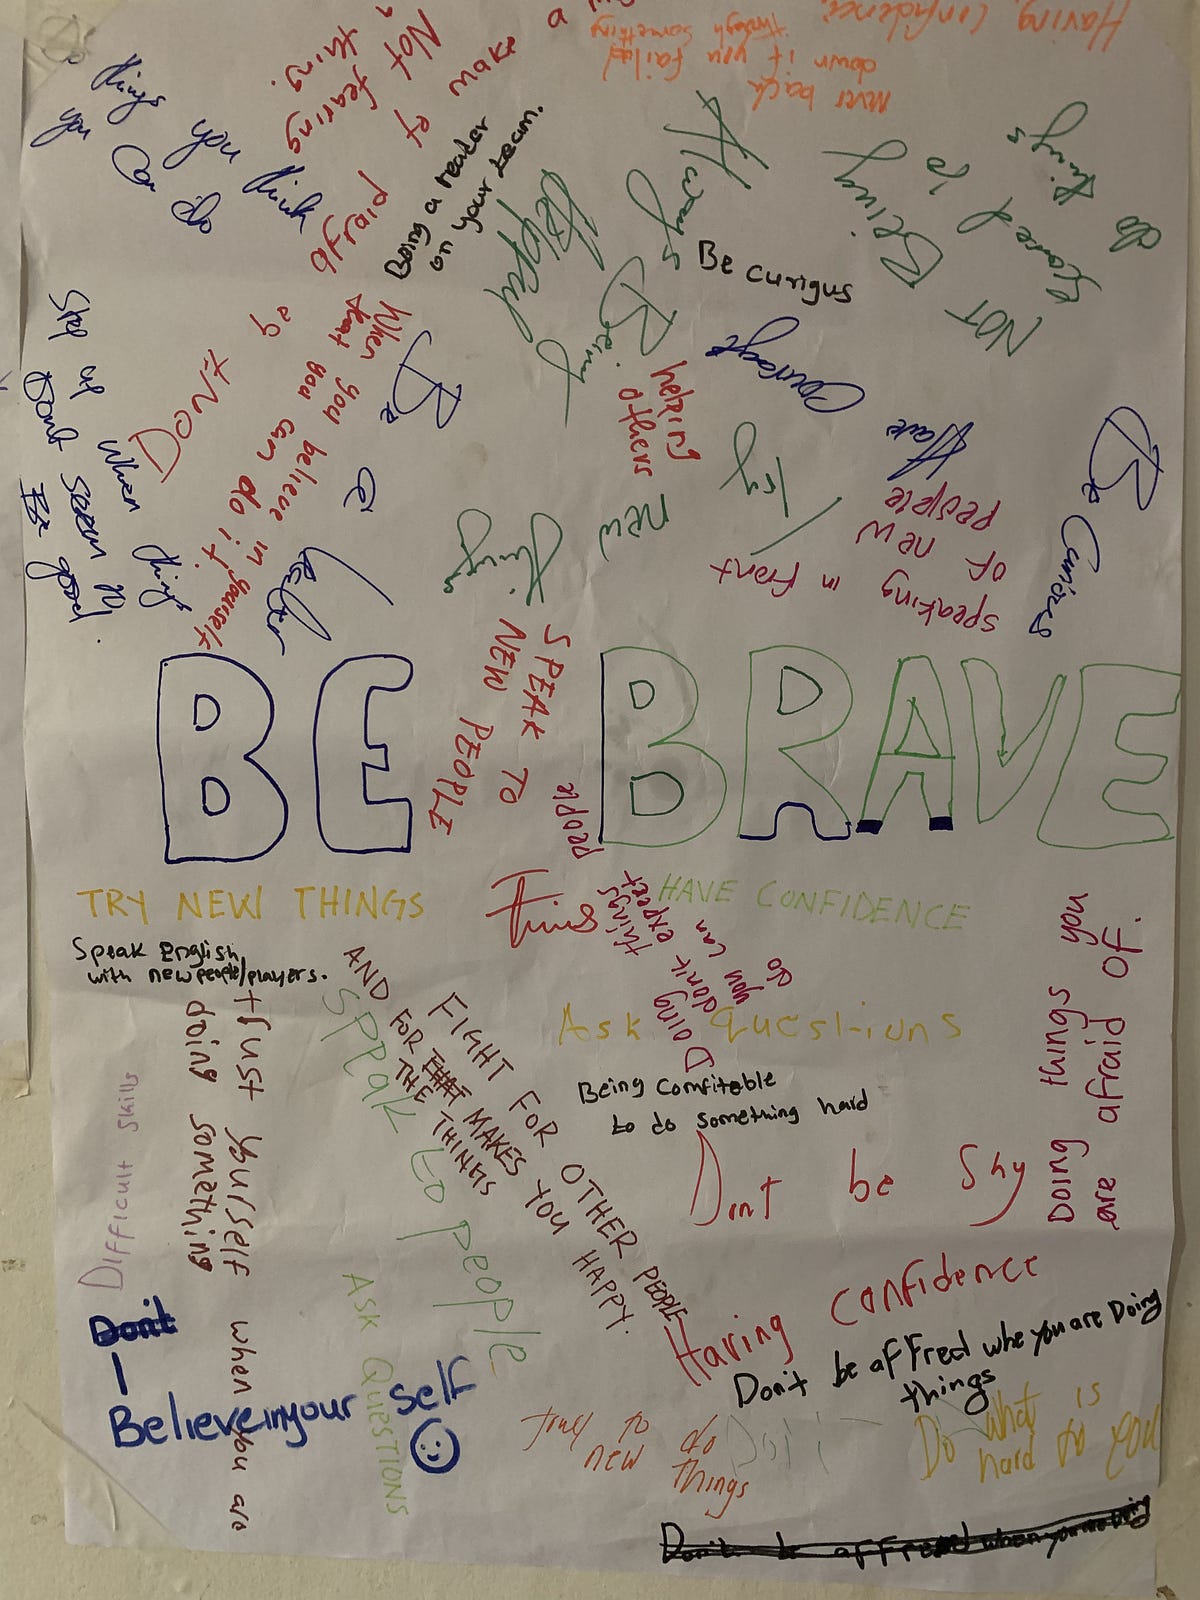 Having Confidence
never back
down if you failed
through something
Not fearing
thing.
Not
afraid
of
make
a
things you think
you can do
Being a reader
on your team.
Always
Being
helpful
Being
Be curigus
NOT Being
forced to
do things
Courage
Have
Be Curiores
Step up when things
Dont seem
Be good.
DO NOt
Be
a
Leader
When you believe in yourself
that you can do it.
helping
others
Try
new
things
speaking in front
of new
people
SPEAK TO
NEW PEOPLE
BE BRAVE
people
TRY NEW THINGS
HAVE CONFIDENCE
Speak English
with new people/players.
Doing things
don't expect
you can
do
Ask Questions
Doing things you
are afraid of.
trust yourself when you are
doing something
Difficult Skills
Speak to people
FIGHT FOR OTHER PEOPLE
AND FOR THAT MAKES YOU HAPPY.
THE THINGS
Being Comfitable
to do something hard
Dont be Shy
Having Confidence
Don't
I
Believe in your self
ASK QUESTIONS
Don't be affred whe you are Doing
things
to do
new things
Do what is
hard to you
Don't be affread when you are Doing